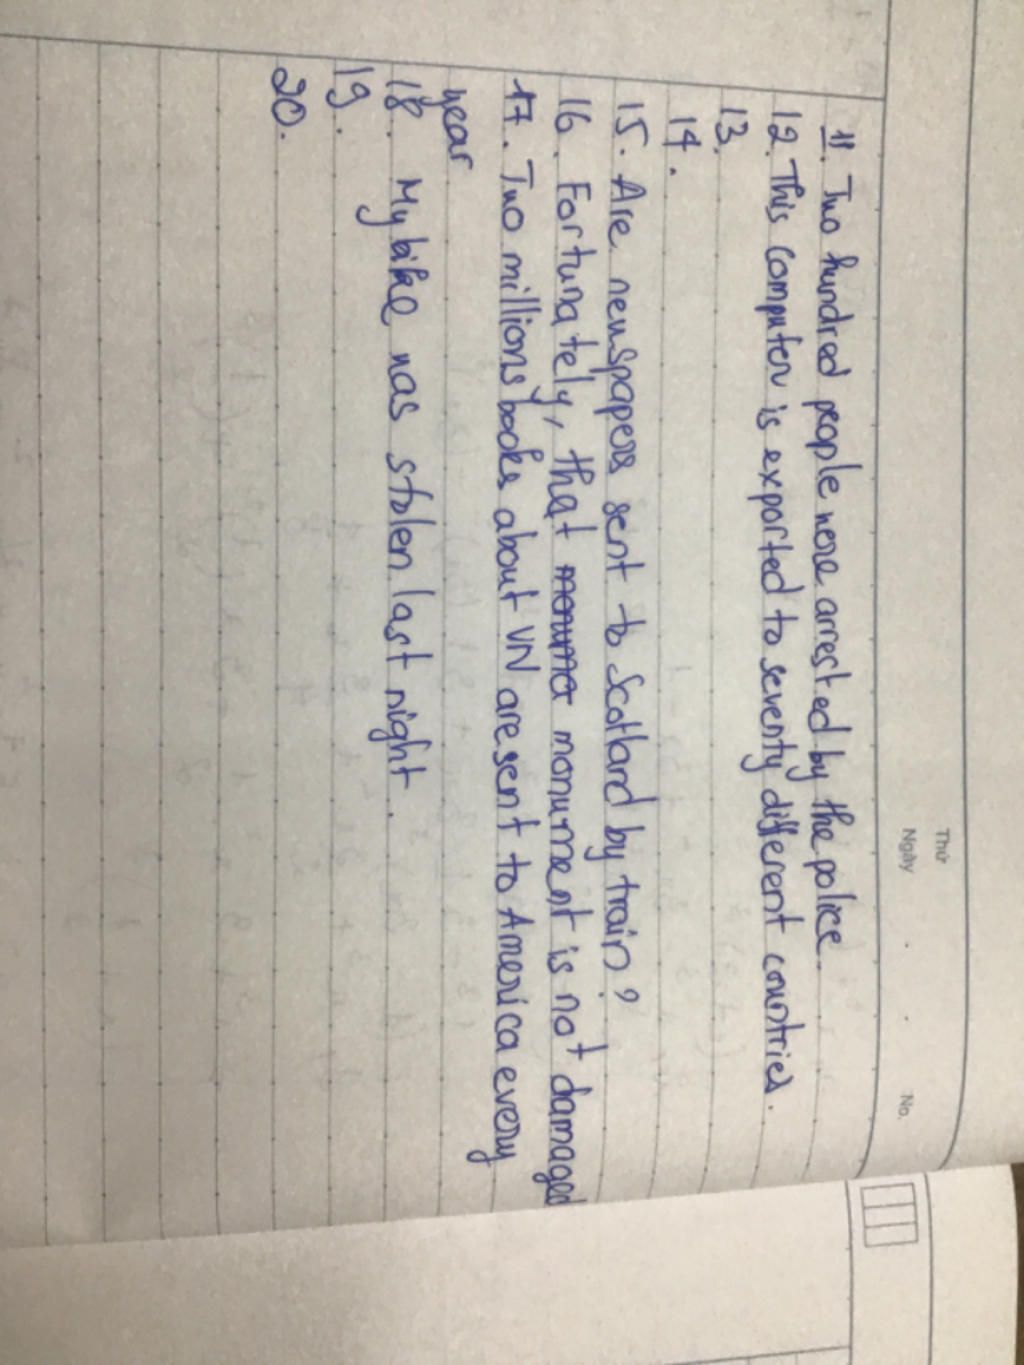 Thứ
Ngày . . No.
11. Two hundred people were arrested by the police.
12. This computer is exported to seventy different countries.
13.
14.
15. Are newspapers sent to Scotland by train?
16. Fortunately, that monume monument is not damaged
17. Two millions books about VN are sent to America every
year
18. My bike was stolen last night.
19.
20.